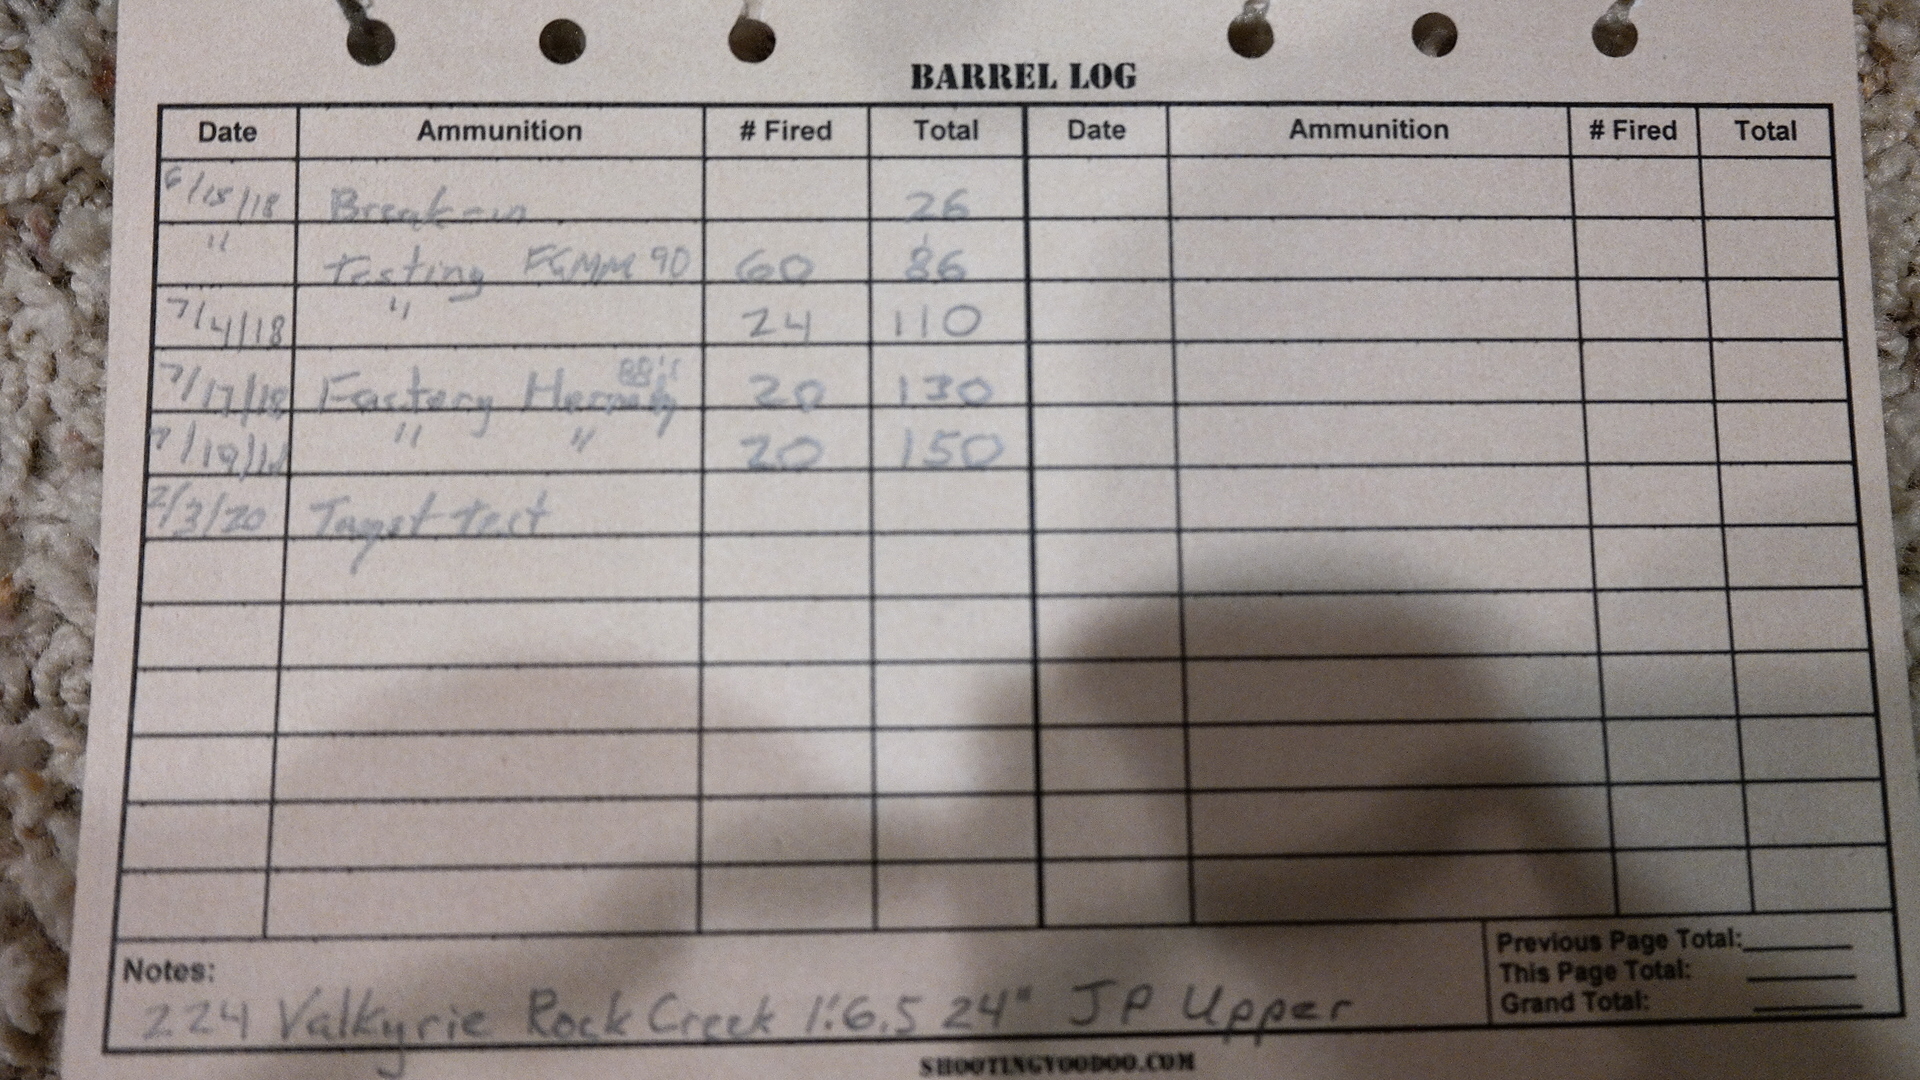 BARREL LOG
Date Ammunition # Fired Total Date Ammunition # Fired Total
6/15/18 Break-in 26
" testing FGMM 90 60 86
7/4/18 " 24 110
7/17/18 Factory Hornady 88's 20 130
7/19/18 " " 20 150
2/3/20 Target test
Notes:
224 Valkyrie Rock Creek 1:6.5 24" JP Upper
Previous Page Total:
This Page Total:
Grand Total:
SHOOTINGVOODOO.COM